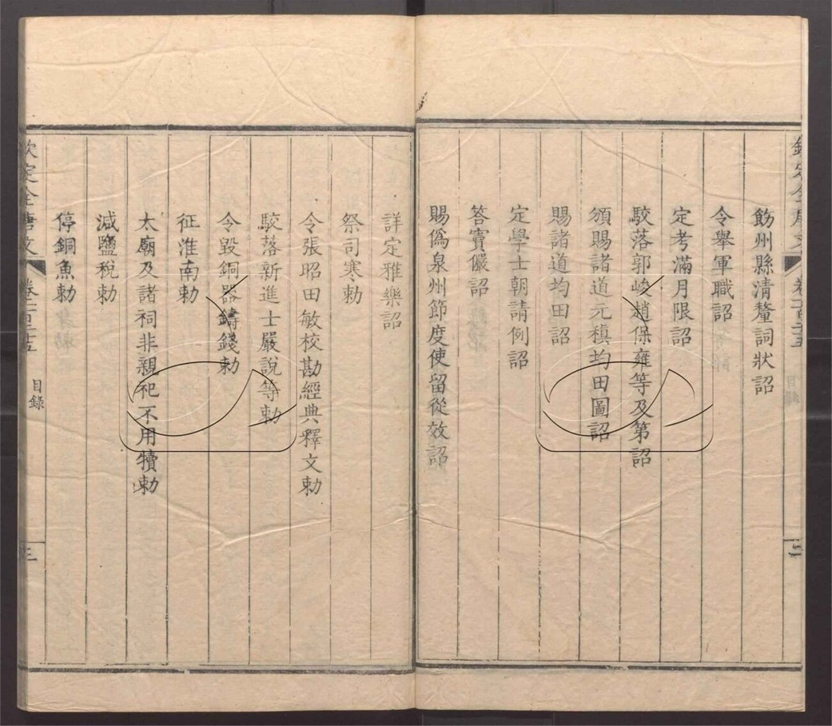 飭州縣清釐詞狀詔
令舉軍職詔
定考滿月限詔
駮落郭峻趙保雍等及第詔
頒賜諸道元稹均田圖詔
賜諸道均田詔
定學士朝請例詔
答竇儼詔
賜僞泉州節度使留從效詔
詳定雅樂詔
祭司寒勅
令張昭田敏校勘經典釋文勅
駮落新進士嚴說等勅
令毀銅器鑄錢勅
征淮南勅
太廟及諸祠非親祀不用犢勅
減鹽稅勅
停銅魚勅
欽定全唐文
目錄
三